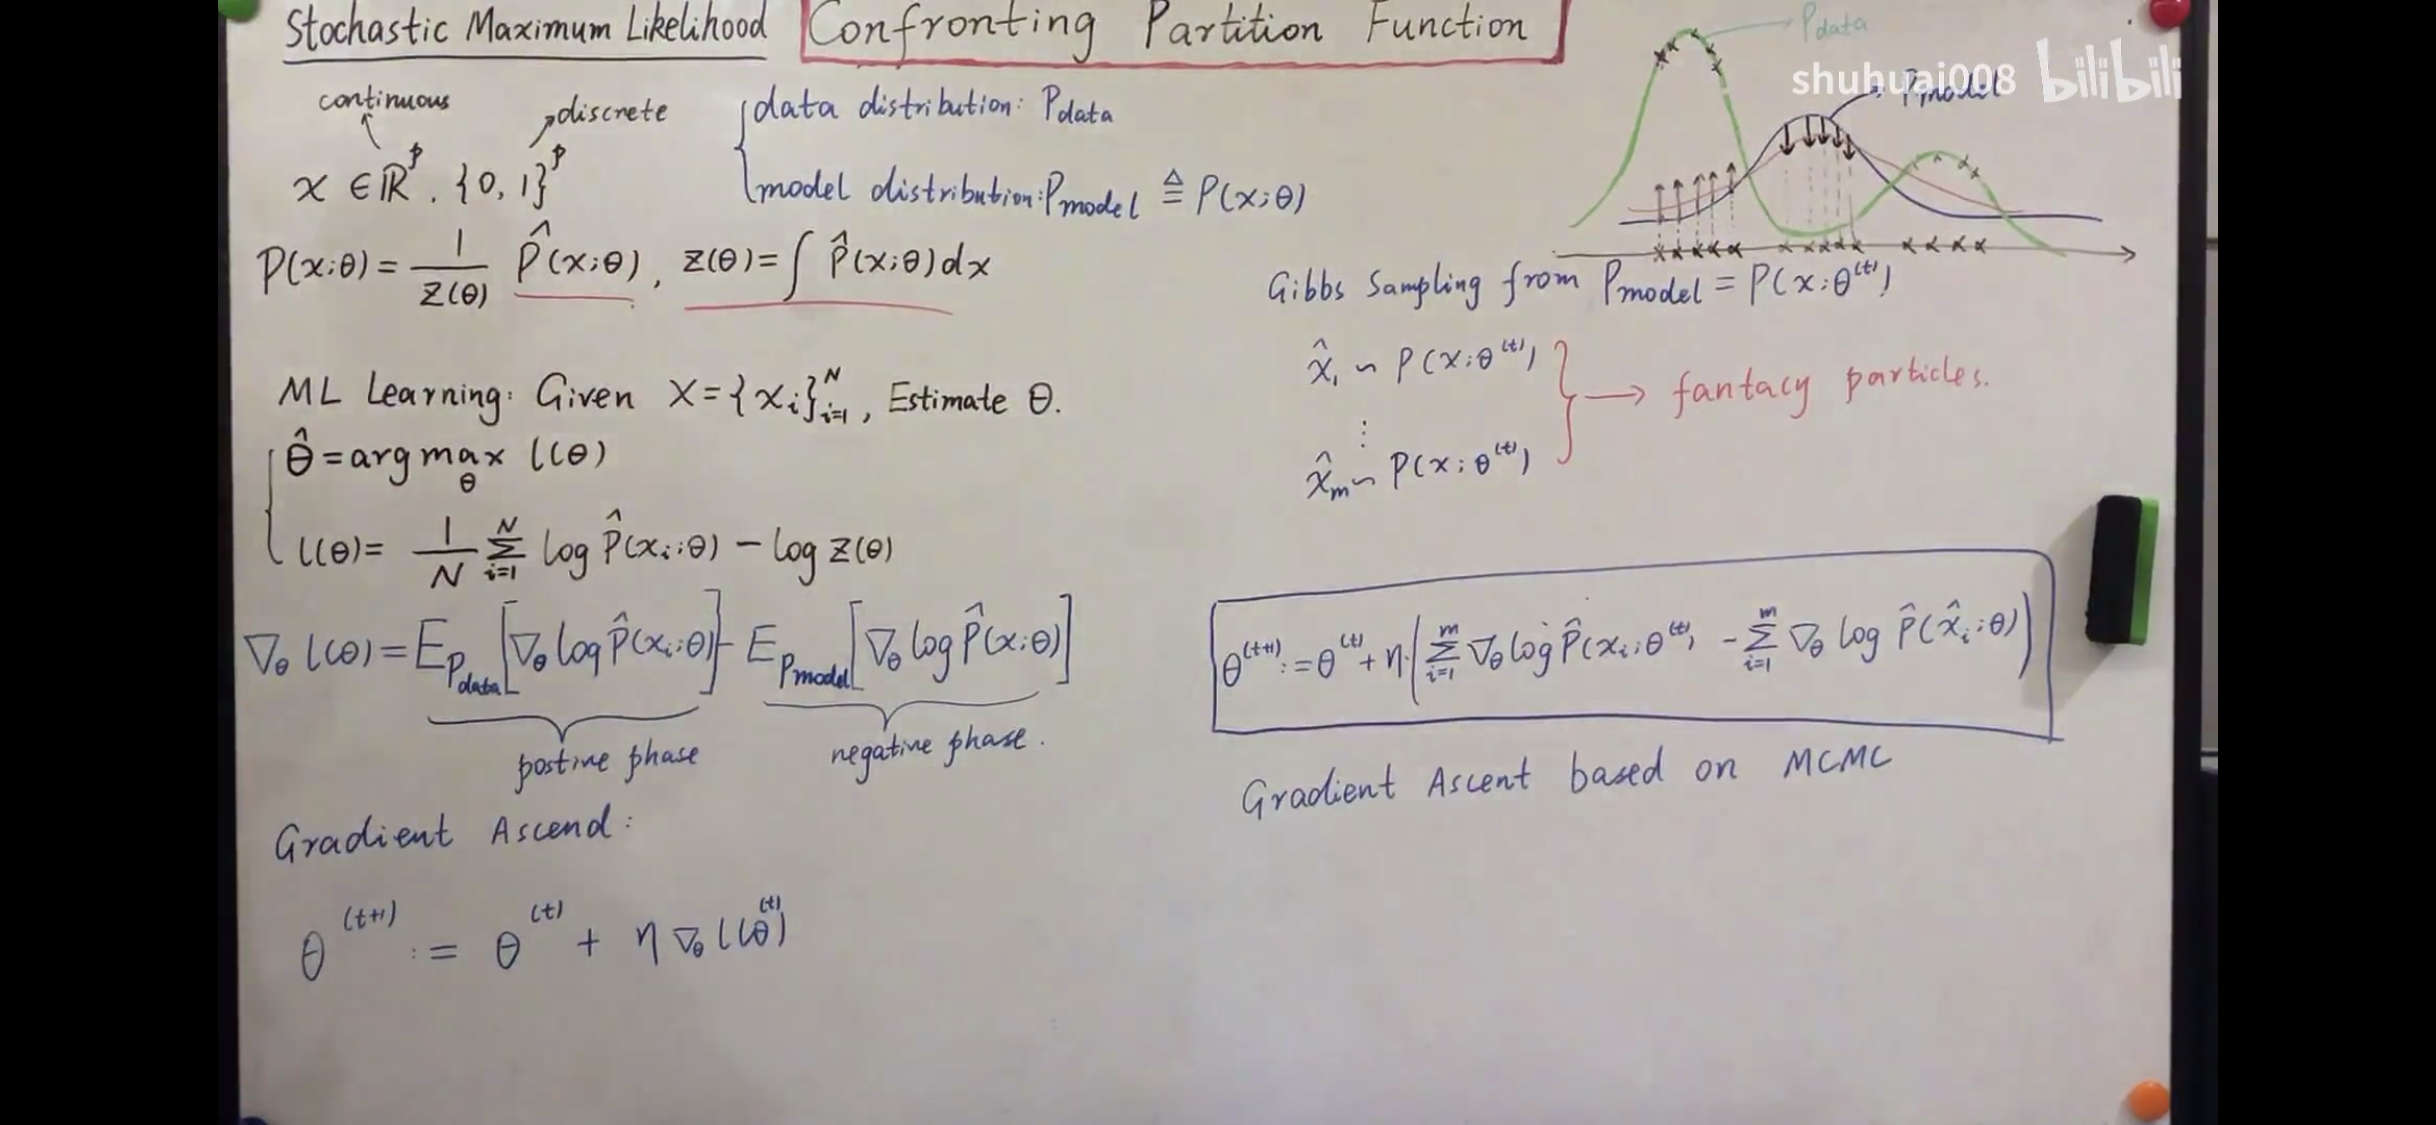 Stochastic Maximum Likelihood
Confronting Partition Function
continuous
discrete
x ∈ ℝ^p, {0, 1}^p
P(x;θ) = 1/Z(θ) P̂(x;θ), Z(θ) = ∫ P̂(x;θ) dx
data distribution: Pdata
model distribution: Pmodel ≜ P(x;θ)
ML Learning: Given X = {x_i}_{i=1}^N, Estimate θ.
θ̂ = arg max_θ l(θ)
l(θ) = 1/N Σ_{i=1}^N log P̂(x_i;θ) − log Z(θ)
∇_θ l(θ) = E_Pdata[∇_θ log P̂(x_i;θ)] − E_Pmodel[∇_θ log P̂(x;θ)]
postive phase
negative phase.
Gradient Ascend:
θ^(t+1) := θ^(t) + η ∇_θ l(θ^(t))
Pdata
shuhuai008 bilibili
Pmodel
Gibbs Sampling from Pmodel = P(x;θ^(t))
x̂_1 ~ P(x;θ^(t))
⋮
x̂_m ~ P(x;θ^(t))
→ fantacy particles.
θ^(t+1) := θ^(t) + η·(Σ_{i=1}^m ∇_θ log P̂(x_i;θ^(t)) − Σ_{i=1}^m ∇_θ log P̂(x̂_i;θ))
Gradient Ascent based on MCMC